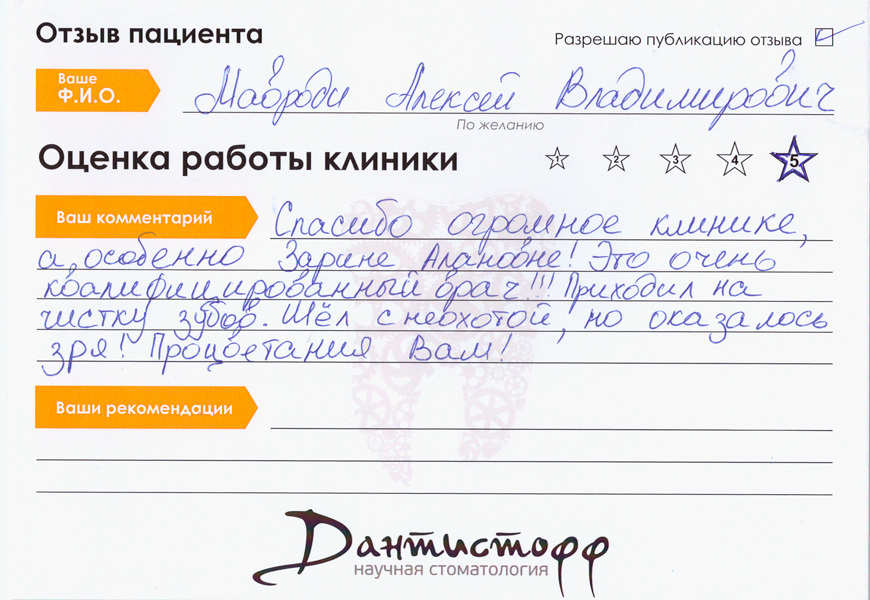 Отзыв пациента
Разрешаю публикацию отзыва
Ваше
Ф.И.О.
Мавроди Алексей Владимирович
По желанию
Оценка работы клиники
1 2 3 4 5
Ваш комментарий
Спасибо огромное клинике,
а, особенно Зарине Алановне! Это очень
квалифицированный врач!!! Приходил на
чистку зубов. Шёл с неохотой, но оказалось
зря! Процветания Вам!
Ваши рекомендации
Дантистофф
научная стоматология